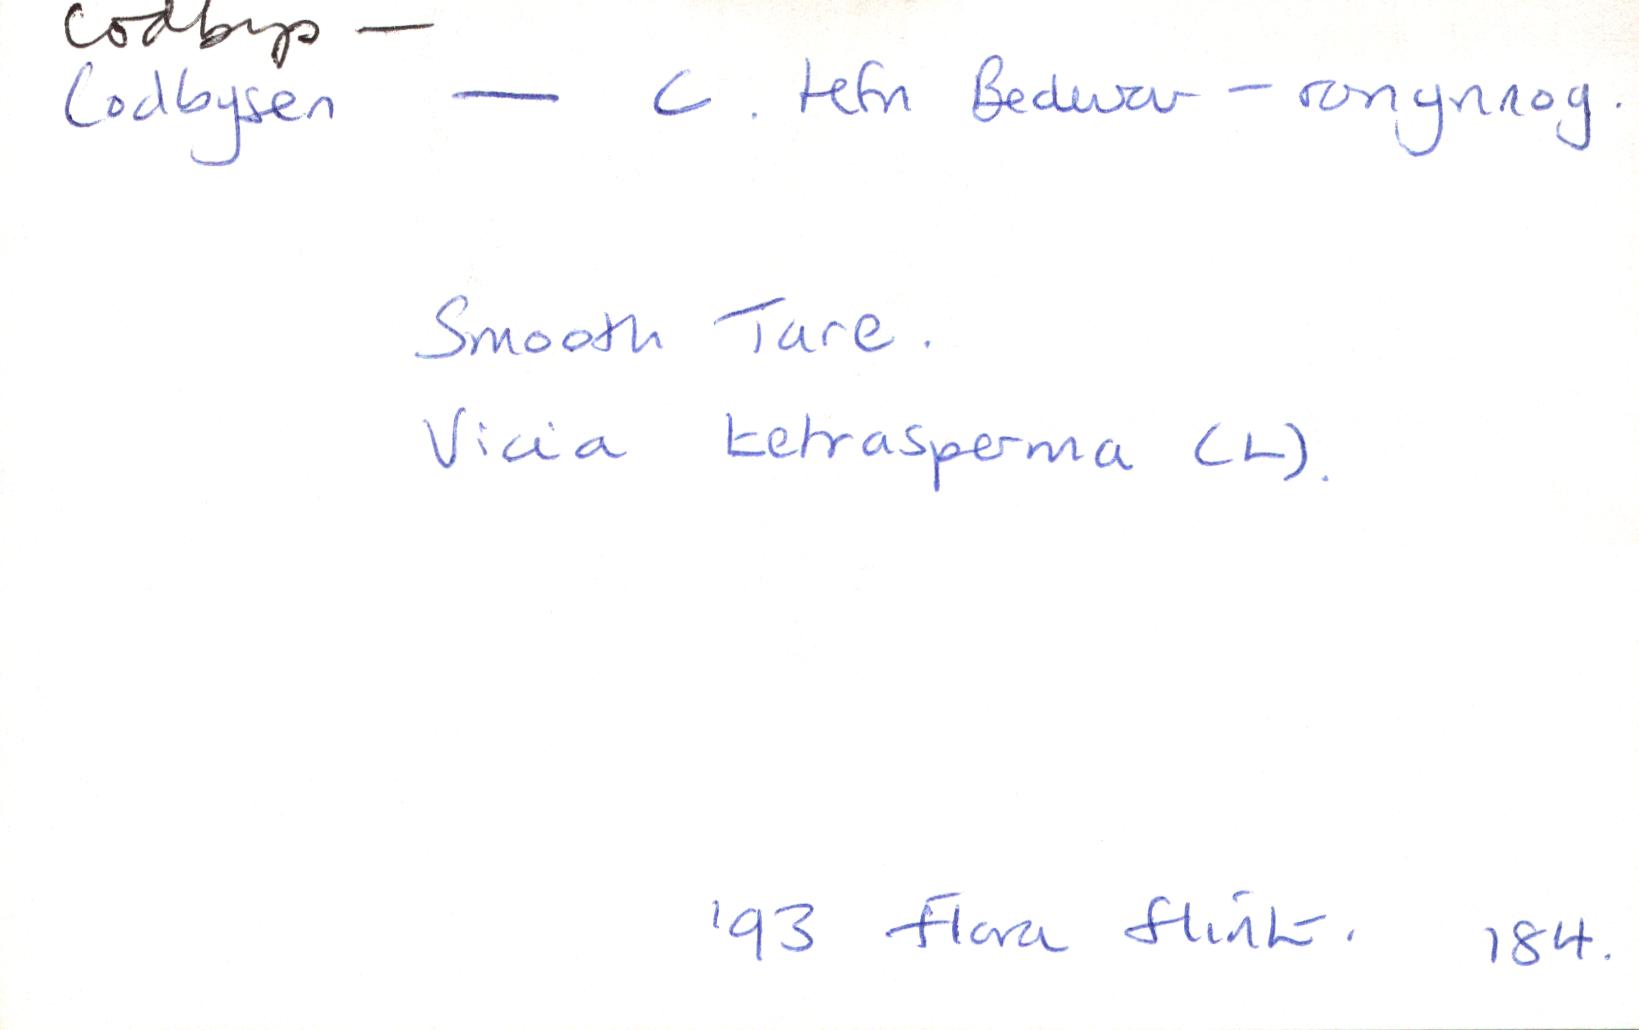 Codbys —
Codbysen — C. lefn Bedwar-ronynnog.
Smooth Tare.
Vicia tetrasperma (L).
'93 Flora Flint. 184.